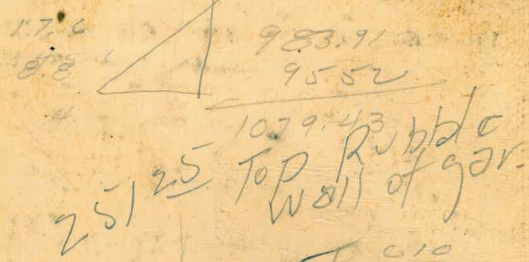 17.6
983.91
8.8
95.52
1079.43
251 25 Top Rubble
Wall of gar.
010